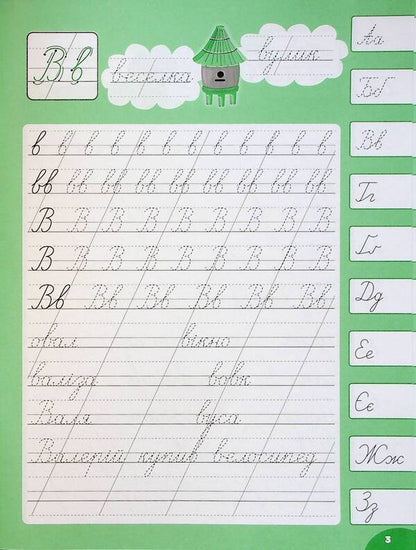 Вв
веселка
вулик
в в в в в в в в в в в
вв вв вв вв вв вв вв вв вв вв
В В В В В В В В
В В В В В В В В
Вв Вв Вв Вв Вв Вв
овал вікно
валіза вовк
Валя вуса
Валерій купив велосипед
Аа
Бб
Вв
Гг
Ґґ
Дд
Ее
Єє
Жж
Зз
3